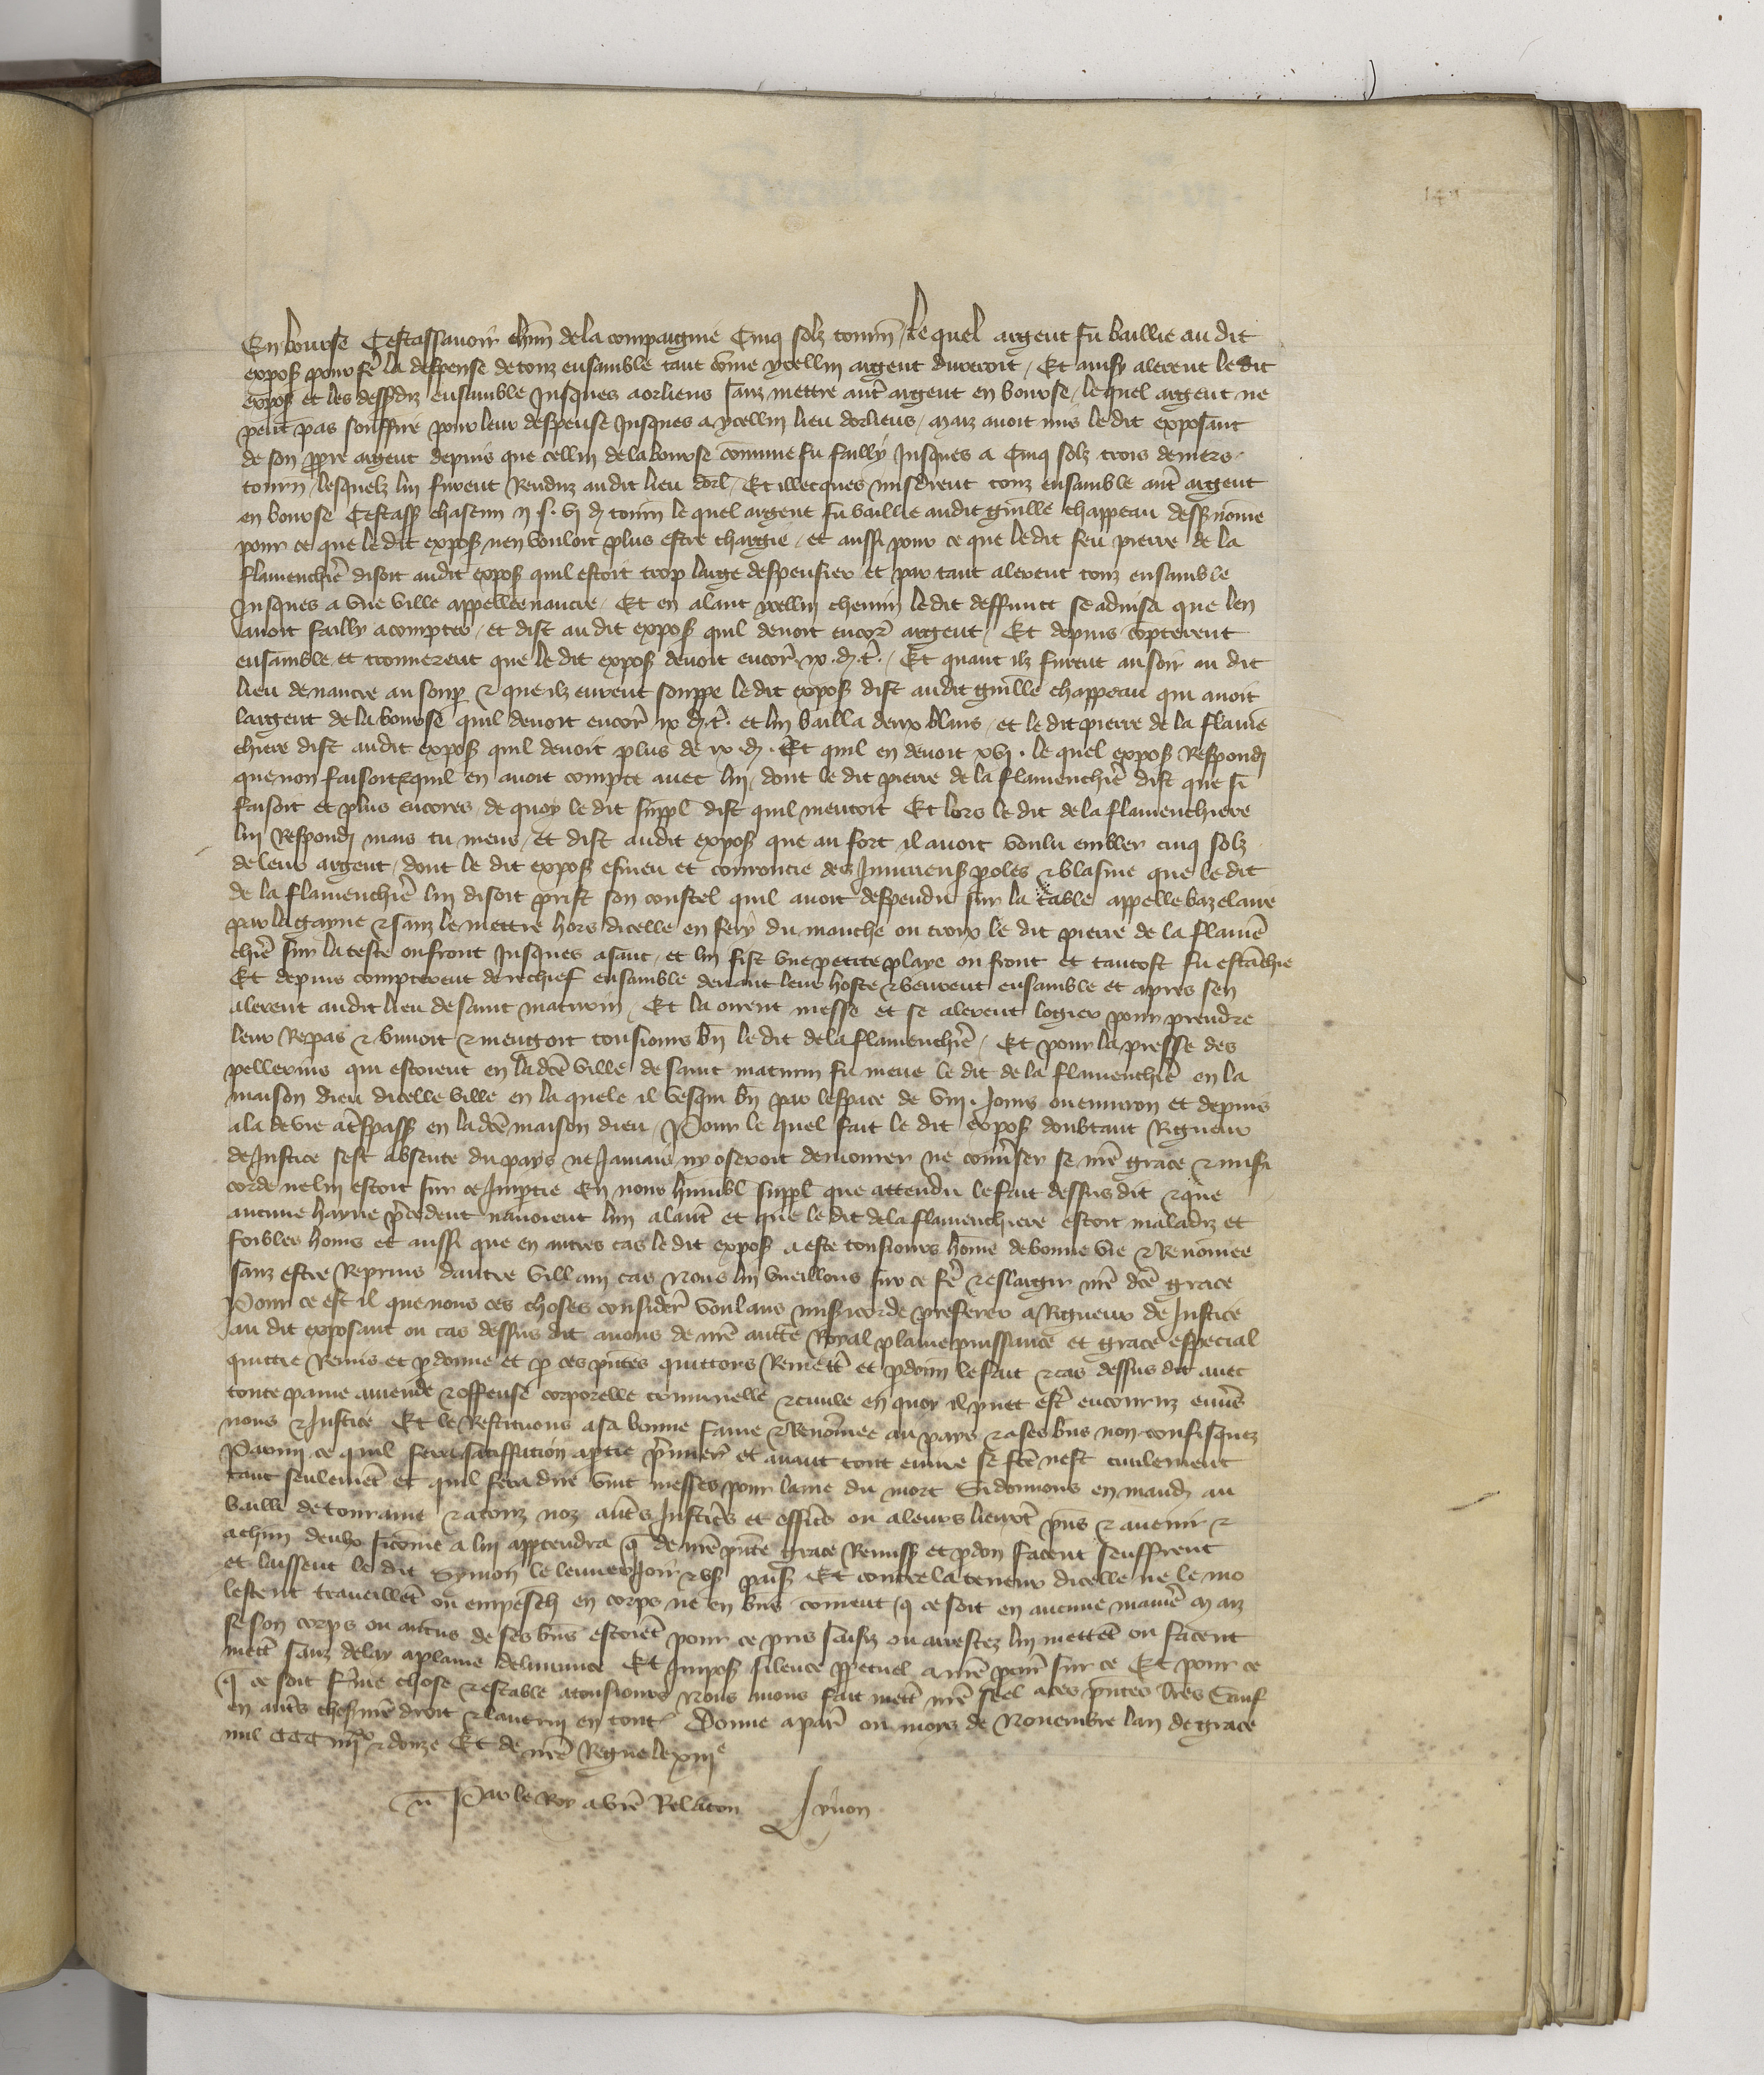 En bourse Cestassavoir chm̃ de la compaignie Cinq solz tourn̄ / le quel argent fu baillie au dit
expos̄ pour fe᷑ la despense de touz ensamble tant com̄e ycellui argent dureroit / Et ainsy alerent le dit
expos̄ et les dessdiz ensamble Jusques aorliens sanz mettre aut᷑ argent en bourse / le quel argent ne
peut pas souffire pour leur despense Jusques a ycellui lieu dorliens / Maiz avoit mis le dit exposant
de son ppre argent depuis que cellui de la bourse com̄une fu failly Jusques a Cinq solz trois deniers
tourn̄ / lesquelz lui furent Renduz au dit lieu dorl̄ / Et illecques misdrent touz ensamble aut᷑ argent
en bourse Cestass̄ chascun ij s. vj d̄ tourn̄ le quel argent fu baillie audit guille chappeau dess̄ nom̄e
pour ce que le dit expos̄ nen vouloit plus estre chargie / et aussi pour ce que le dit feu pierre de la
flamenchie᷑ disoit audit expos̄ quil estoit trop large despensier et par tant alerent touz ensamble
Jusques a une ville appellee nancre / Et en alant ycellui chemin le dit deffunct se advisa que len
avoit failly a compter / et dist au dit expos̄ quil devoit encor᷑ argent / Et depuis cōpterent
ensamble et trouverent que le dit expos̄ devoit encor᷑ ix .d. t̄. / Et quant ilz furent au soir au dit
lieu de nancre au soup̄ & que ilz eurent souppe le dit expos̄ dist audit guille chappeau qui avoit
largent de la bourse quil devoit encor᷑ ix d. t̄. et lui bailla deux blans / et le dit pierre de la flamē
chiere dist audit expos̄ quil devoit plus de ix .d. Et quil en devoit xvj . le quel expos̄ Respond̄
que non faisoit & quil en avoit compte avec lui / dont le dit pierre de la flamenchie᷑ dist que si
faisoit et plus encores / de quoy le dit suppl̄ dist quil mentoit Et lors le dit de la flamenchiere
lui Respond̄ mais tu mens / Et dist audit expos̄ que au fort il avoit voulu embler cinq solz
de leur argent / dont le dit expos̄ esmeu et courroucie des Injurieus᷑ poles & blasme que le dit
de la flamenchie᷑ lui disoit prist son coustel quil avoit despendu sur la table appelle bazelaire
par la gayne & sanz le mettre hors dicelle en fery du manche ou croix le dit pierre de la flamē
chie᷑ sur la teste ou front Jusques a sanc / et lui fist une petite playe ou front et tantost fu estāchie
Et depuis compterent derechief ensamble devant leur hoste & beurent ensamble et apres sen
alerent audit lieu de saint maturin / Et la oirent messe et se alerent logier pour prendre
leur Repas & buvoit & mengoit tousiours bn̄ le dit de la flamenchie᷑ / Et pour la presse des
pellerins qui estoient en la dc̄e ville de saint maturin fu mene le dit de la flamenchie᷑ en la
maison dieu dicelle ville en la quele il vesqui bn̄ par lespace de viij . Jours ou environ et depuis
ala de vie a tˢpass̄ en la dc̄e maison dieu / Pour le quel fait le dit expos̄ doubtant Rigueur
de Justice sest absente du pays ne Jamais ny oseroit demourer ne conv᷑ser se nr̄e grace & mis̄i
corde ne lui estoit sur ce Imptie En nous humbl̄ suppl̄ que attendu le fait dessus dit & que
aucune hayne p᷑cedent navoient lun a laut᷑ et que le dit de la flamenchiere estoit maladiz et
foibles homs et aussi que en autres cas le dit expos̄ a este tousiours hom̄e de bonne vie & Renom̄ee
sanz estre Reprins dautre villain cas Nous lui vueillons sur ce fe᷑ & eslargir nr̄e dc̄e grace
Pour ce est il que nous ces choses consider᷑ voulans mis̄icorde preferer a Rigueur de Justice
au dit exposant ou cas dessus dit avons de nr̄e auctē Royal plaine puissance et grace especial
quittie Remis et pdonne et p ces pn̄tes quittons Remett᷑ et pdonn̄ le fait & cas dessus dit avec
toute paine amende & offense corporelle criminelle & civile en quoy il puet est᷑ encouruz env᷑s
nous & Justice Et le Restituons a sa bonne fame & Renom̄ee au pays & a ses bn̄s non confisquez
Parmi ce quil fera satisfaction aptie p᷑mier᷑ et avant tout euvre se fc̄e nest civilement
tant seulemēt et quil fera dire vint messes pour lame du mort Si donnons en mand̄ au
bailli de touraine & a touz noz aut᷑s Justicˢ et officˢ ou a leurs lieuxt̄ pn̄s & avenir &
a chūn deulx sicom̄e a lui apptendra q̄ de nr̄e pn̄te grace Remiss̄ et pdon facent seuffrent
et laissent le dit Symon le Joir & us̄ pais̄ Et contre la teneur dicelle ne le mo
lestent travaillēt ou empesch̄ en corps ne en bn̄s coment q̄ ce soit en aucune manie᷑ Maiz
se son corps ou aucūs de ses bn̄s estoiēt pour ce pris saisiz ou arrestez lui mettēt ou facent
mett᷑ sanz delay a plaine delivrance Et Impos̄ silence ppetuel a nr̄e pcur᷑ sur ce Et pour ce
q̄ ce soit ferme chose & estable a tousiours Nous avons fait mett᷑ nr̄e seel a ces pn̄tes lr̄es Sauf
en aut᷑s choses nr̄e droit & lautrui en tout / Donne a par᷑ ou mois de Novembre lan de grace
mil CCC iiijxx & douze Et de nr̄e Regne le xiije
Par le Roy a vr̄e Relacion